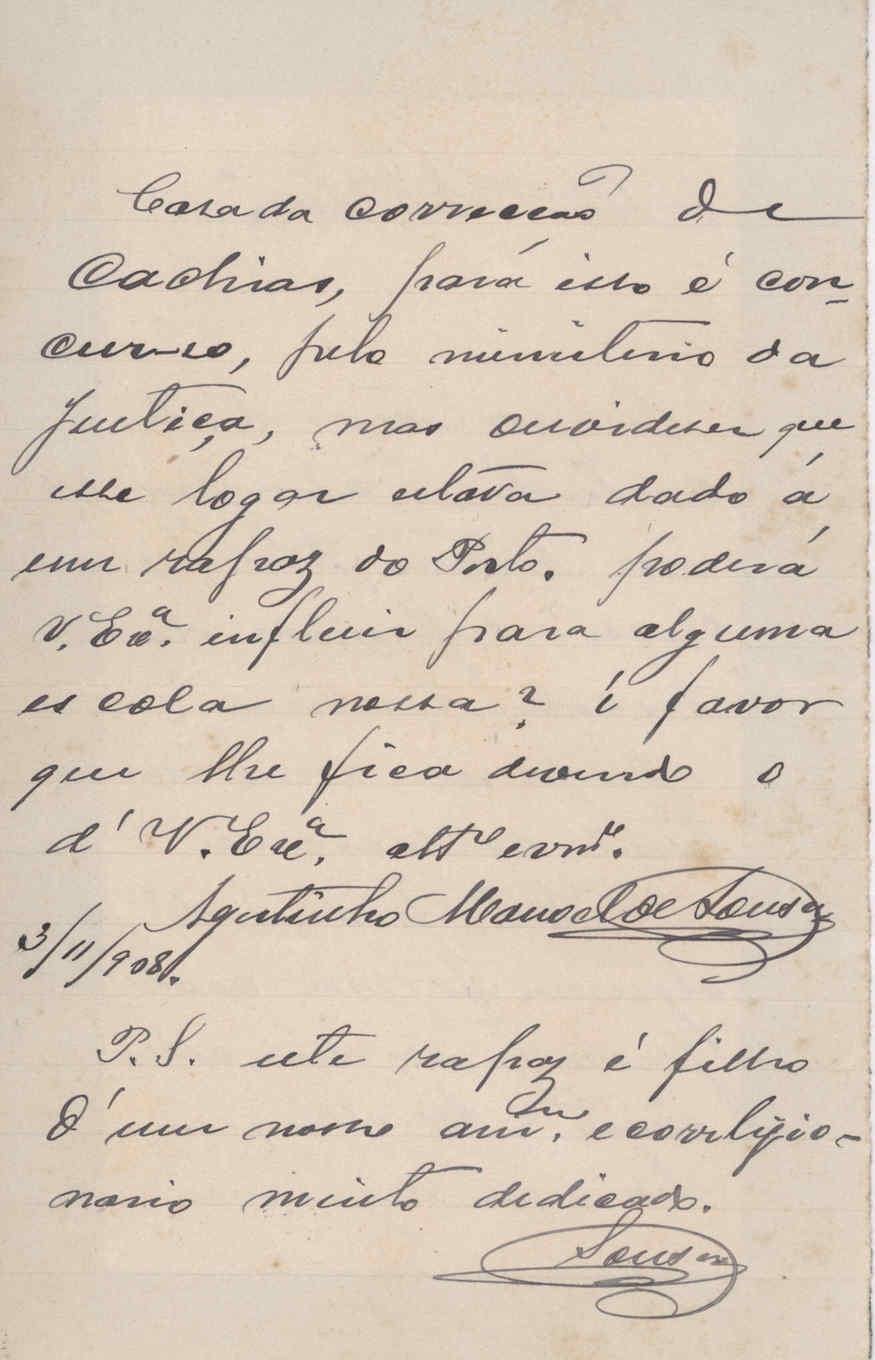 Casa da correcção de
Cachias, pará isso é con-
curso, pelo ministerio da
Justiça, mas ouvi dizer que
esse logar estava dado á
um rapaz do Porto. poderá
V. Exª. influir para alguma
escola nossa? é favor
que lhe fica devendo o
d' V. Exª. attº e vnr.
Agostinho Manoel de Sousa
3/11/908.
P.S. este rapaz é filho
d'um nosso amº. e corrligio-
nario muito dedicado.
Sousa